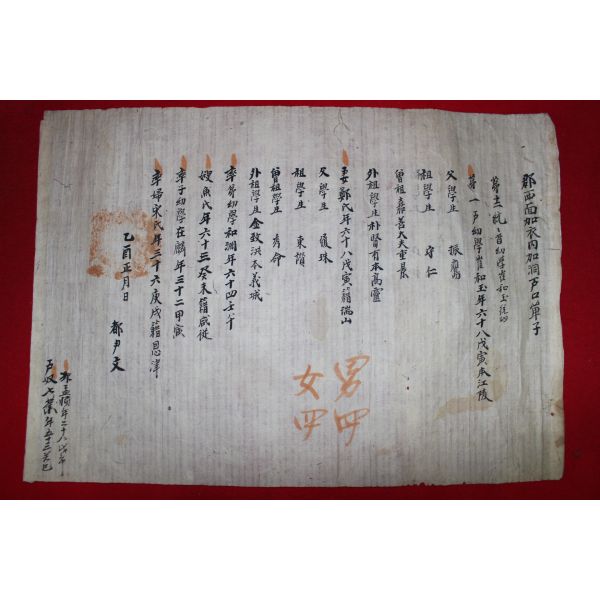 郡西面加衣內加洞戶口單子
第十一統 首幼學崔和玉統內
第一戶幼學崔和玉年六十八戊寅本江陵
父學生 振
祖學生 守仁
曾祖嘉善大夫重
外祖學生朴賢有本高靈
妻鄭氏年六十八戊寅籍瑞山
父學生 復珠
祖學生 東
曾祖學生 命
外祖學生金致洪本義城
率弟幼學和淵年六十四壬午
嫂魚氏年六十三癸未籍咸從
率子幼學在麟年三十二甲寅
率婦宋氏年三十六庚戌籍恩津
乙酉正月日
都尹文
年二十八
年五十三
男四
女四